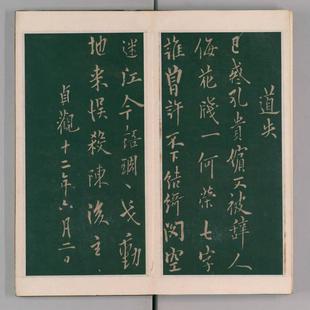 道失
已惑孔貴嬪又被辭人
侮花牋一何榮七字
誰曾許不下結綺閣空
迷江令語琱戈動
地来誤殺陳後主
貞觀十二年六月二日